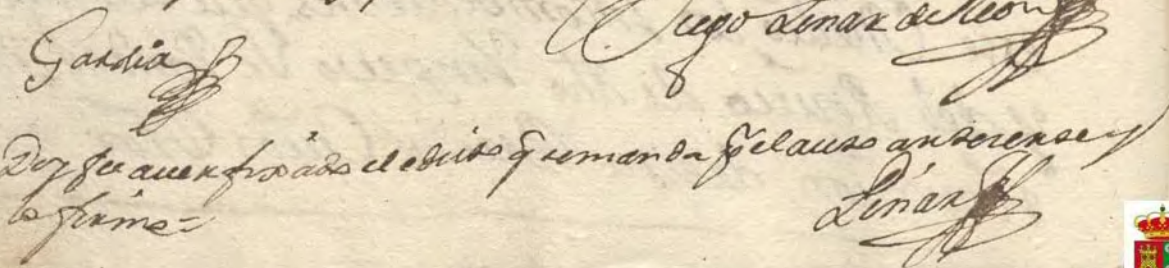 Diego Linar de Leon
Garzia
Doy fee auer fixado el edicto q̃ se manda p̃ el auto antezente y
lo firme =
Linar